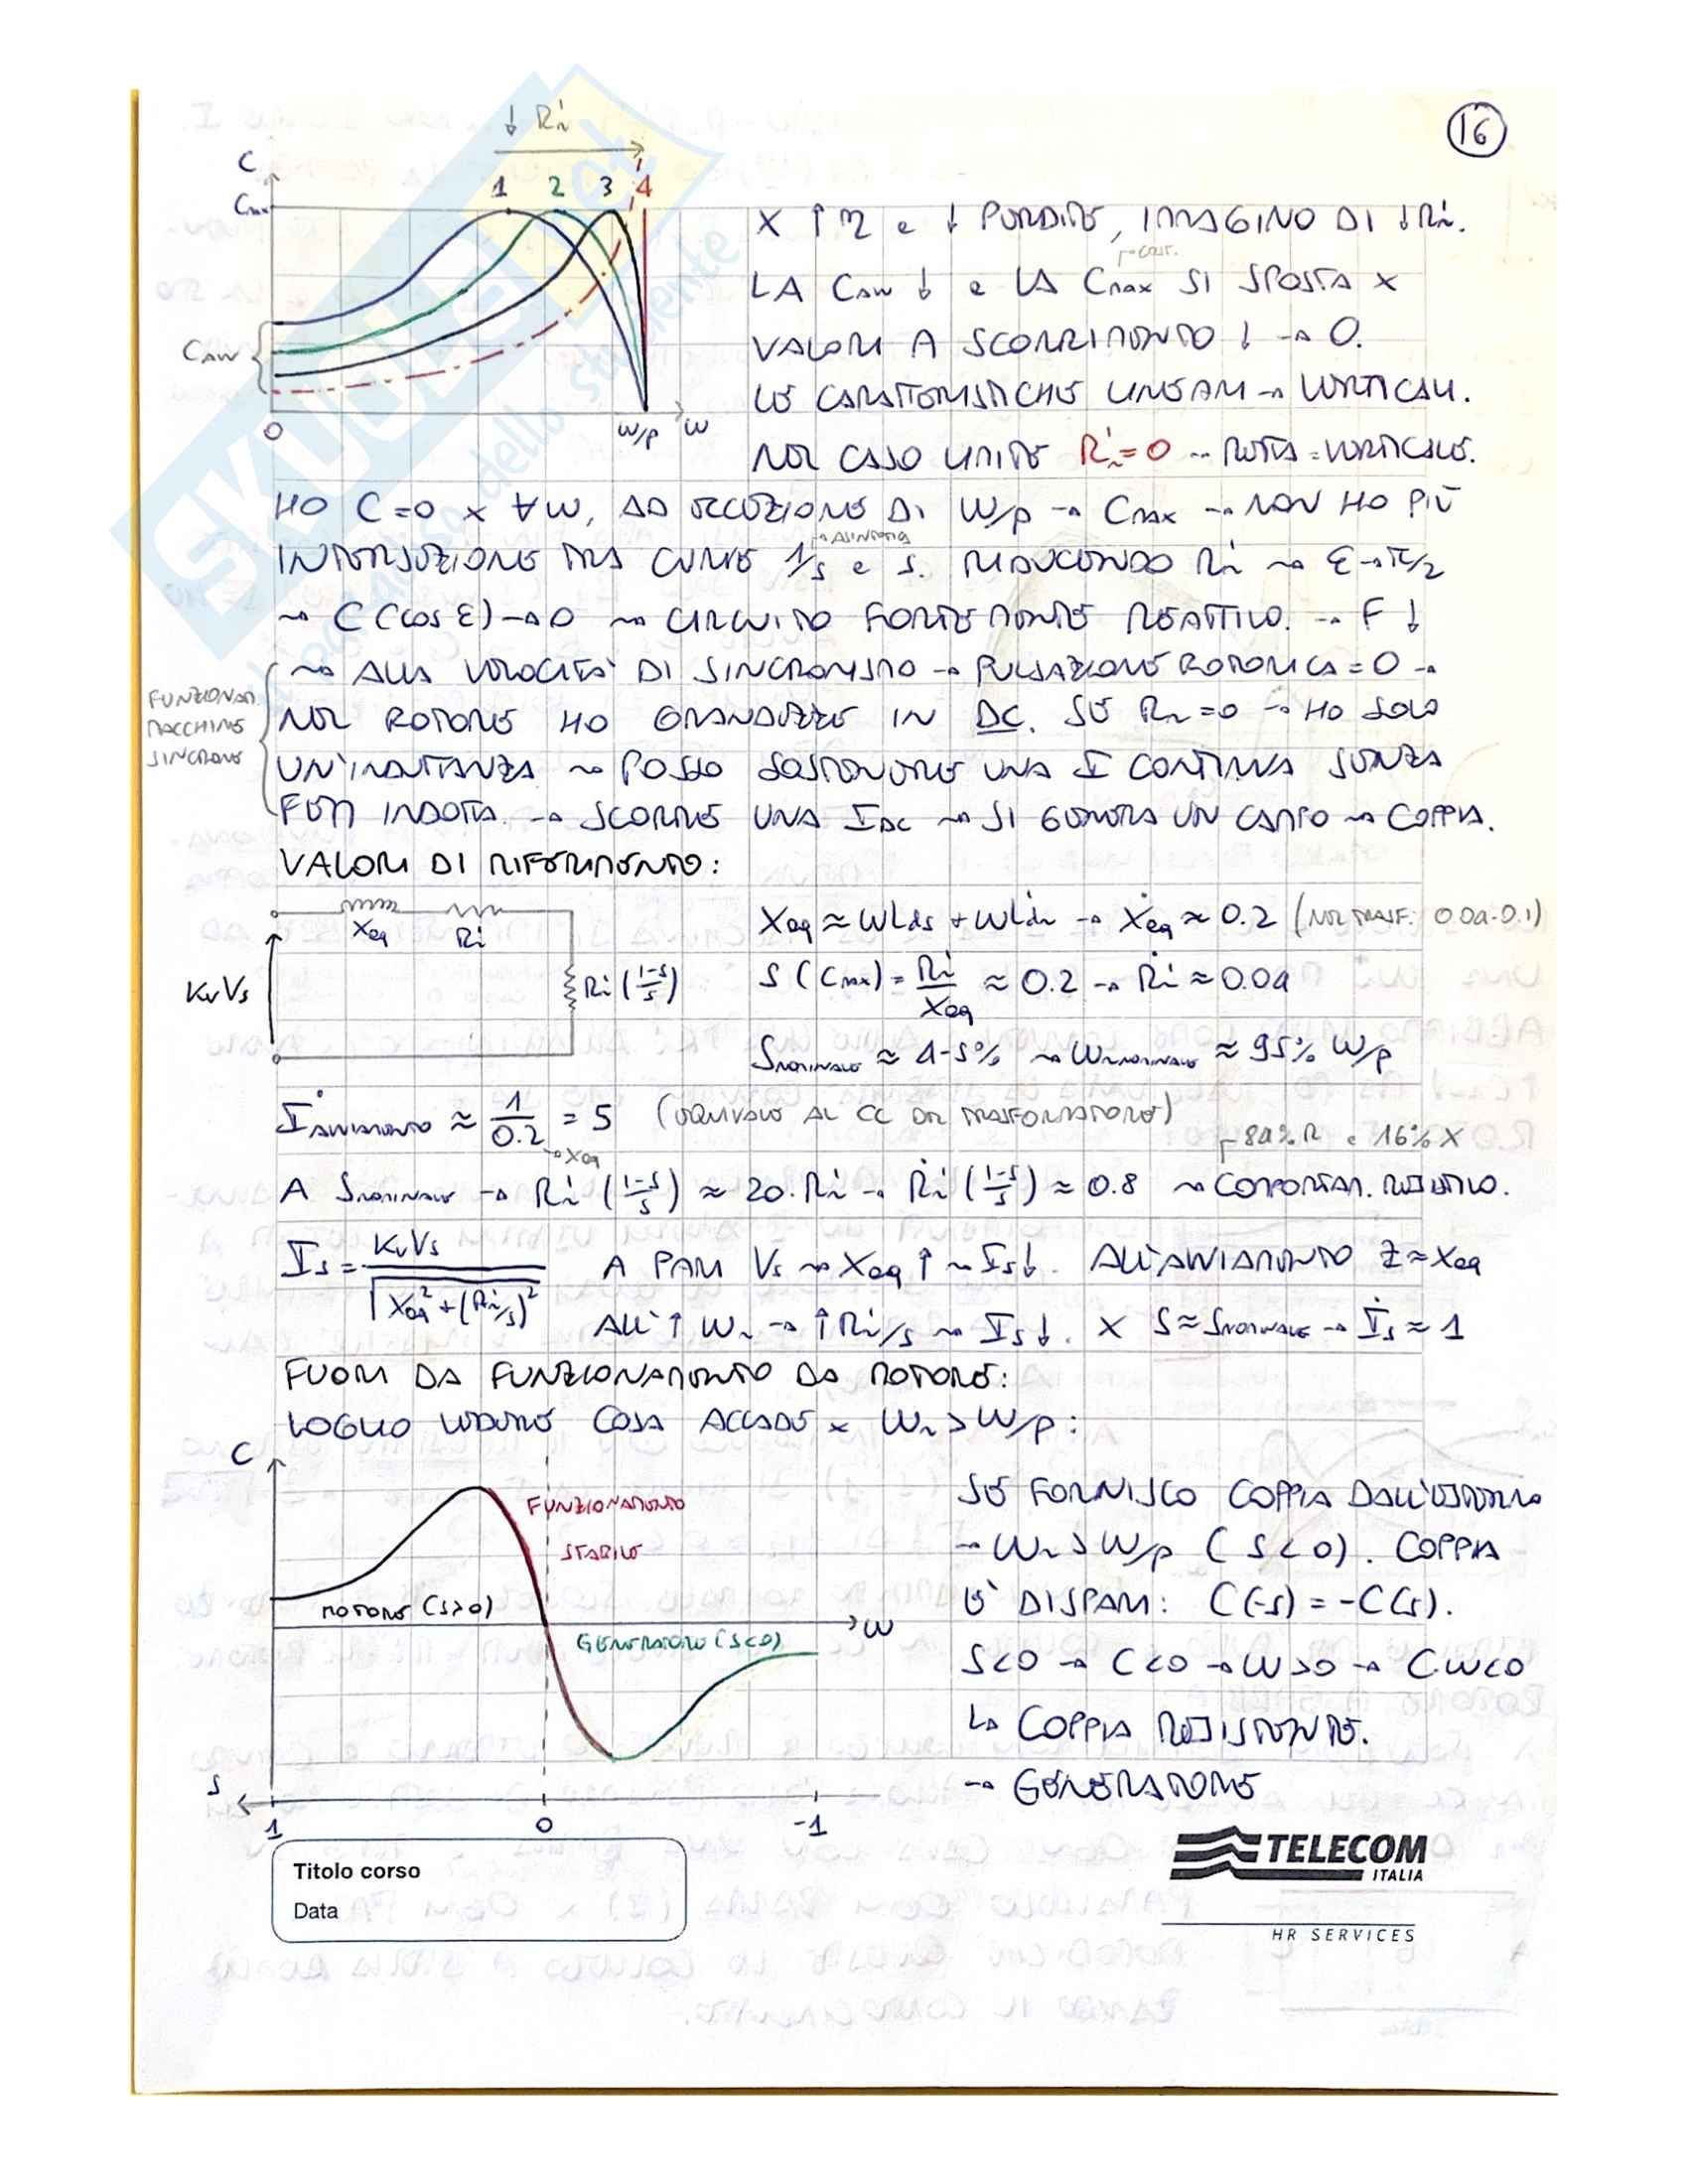 16
↓ Rr'
C
Cmax
1 2 3 4
CAVV
0
ω/p
ω
X ↑η e ↓ PERDITE, IMMAGINO DI ↓Rr'.
→cost.
LA CAVV ↓ e LA Cmax SI SPOSTA x
VALORI A SCORRIMENTO ↓ → 0.
LE CARATTERISTICHE LINEARI → VERTICALI.
NEL CASO LIMITE Rr'=0 → RETTA = VERTICALE.
HO C=0 x ∀ω, AD ECCEZIONE DI ω/p → Cmax → NON HO PIÙ
→ASINTOTO
INTERSEZIONE TRA CURVE 1/s e s. RIDUCENDO Rr' → ε→π/2
→ C(cos ε)→0 → CIRCUITO FORTEMENTE REATTIVO. → F ↓
→ ALLA VELOCITÀ DI SINCRONISMO → PULSAZIONE ROTORICA = 0 →
FUNZIONAM.
MACCHINE
SINCRONE
NEL ROTORE HO GRANDEZZE IN DC. SE Rr=0 → HO SOLO
UN'INDUTTANZA → POSSO SOSTENERE UNA I CONTINUA SENZA
FEM INDOTTA. → SCORRE UNA IDC → SI GENERA UN CAMPO → COPPIA.
VALORI DI RIFERIMENTO:
Xeq
Rr'
KvVs
Rr' (1-s/s)
Xeq ≈ ωLds + ωL'dr → Ẋeq ≈ 0.2 (NEL TRASF: 0.04-0.1)
s (Cmax) = Rr'/Xeq ≈ 0.2 → Ṙr' ≈ 0.04
sNOMINALE ≈ 4-5% → ωrNOMINALE ≈ 95% ω/p
İAVVIAMENTO ≈ 1/0.2 = 5 (EQUIVALE AL CC DEL TRASFORMATORE)
→Xeq
→84% R e 16% X
A sNOMINALE → Rr' (1-s/s) ≈ 20·Rr' → Ṙr' (1-s/s) ≈ 0.8 → COMPORTAM. RESISTIVO.
Is = KvVs/√(Xeq² + (Rr'/s)²)
A PARI Vs → Xeq ↑ → Is↓. ALL'AVVIAMENTO Z ≈ Xeq
ALL'↑ ωr → ↑Rr'/s → Is↓. X s≈sNOMINALE → İs ≈ 1
FUORI DA FUNZIONAMENTO DA MOTORE:
VOGLIO VEDERE COSA ACCADE x ωr > ω/p:
C
FUNZIONAMENTO
STABILE
MOTORE (s>0)
ω
GENERATORE (s<0)
s
1
0
-1
SE FORNISCO COPPIA DALL'ESTERNO
→ ωr > ω/p (s<0). COPPIA
È DISPARI: C(-s) = -C(s).
s<0 → C<0 → ω>0 → C·ω<0
↳ COPPIA RESISTENTE.
→ GENERATORE
Titolo corso
Data
TELECOM
ITALIA
HR SERVICES